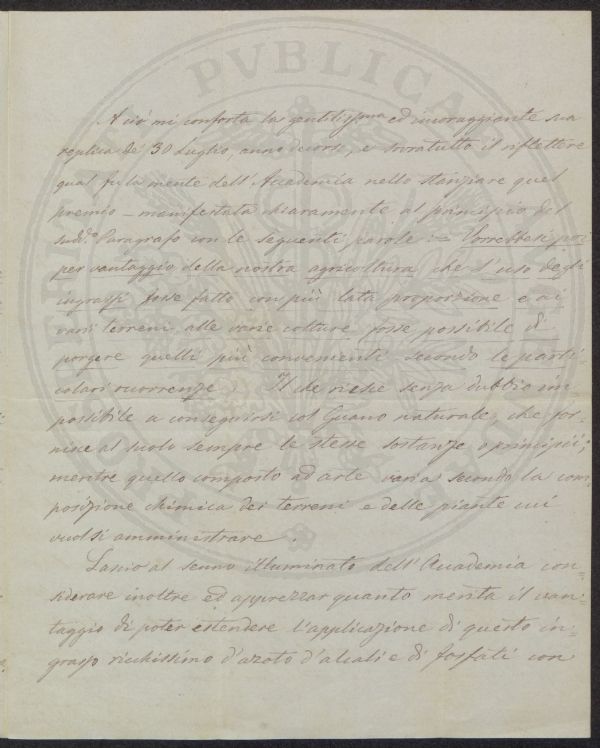 A ciò mi conforta la gentilissma ed incoraggiante sua
replica de' 30 Luglio, anno decorso, e sovratutto il riflettere
qual fu la mente dell'Accademia nello stanziare quel
premio – manifestata chiaramente al principio del
sudd.º Paragrafo con le seguenti parole :– Vorrebbesi poi
per vantaggio della nostra agricoltura, che l'uso degli
ingrassi fosse fatto con più lata proporzione e ai
varii terreni alle varie colture fosse possibile di
porgere quelli più convenienti secondo le parti
colari ocorrenze. Il che riesce senza dubbio im
possibile a conseguirsi col Guano naturale, che for-
nisce al suolo sempre le stesse sostanze o principii;
mentre quello composto ad arte varia secondo la com-
posizione chimica dei terreni e delle piante cui
vuolsi amministrare.
Lascio al senno illuminato dell'Accademia con-
siderare inoltre ed apprezzar quanto merita il van-
taggio di poter estendere l'applicazione di questo in-
grasso ricchissimo d'azoto d'alcali e di fosfati con